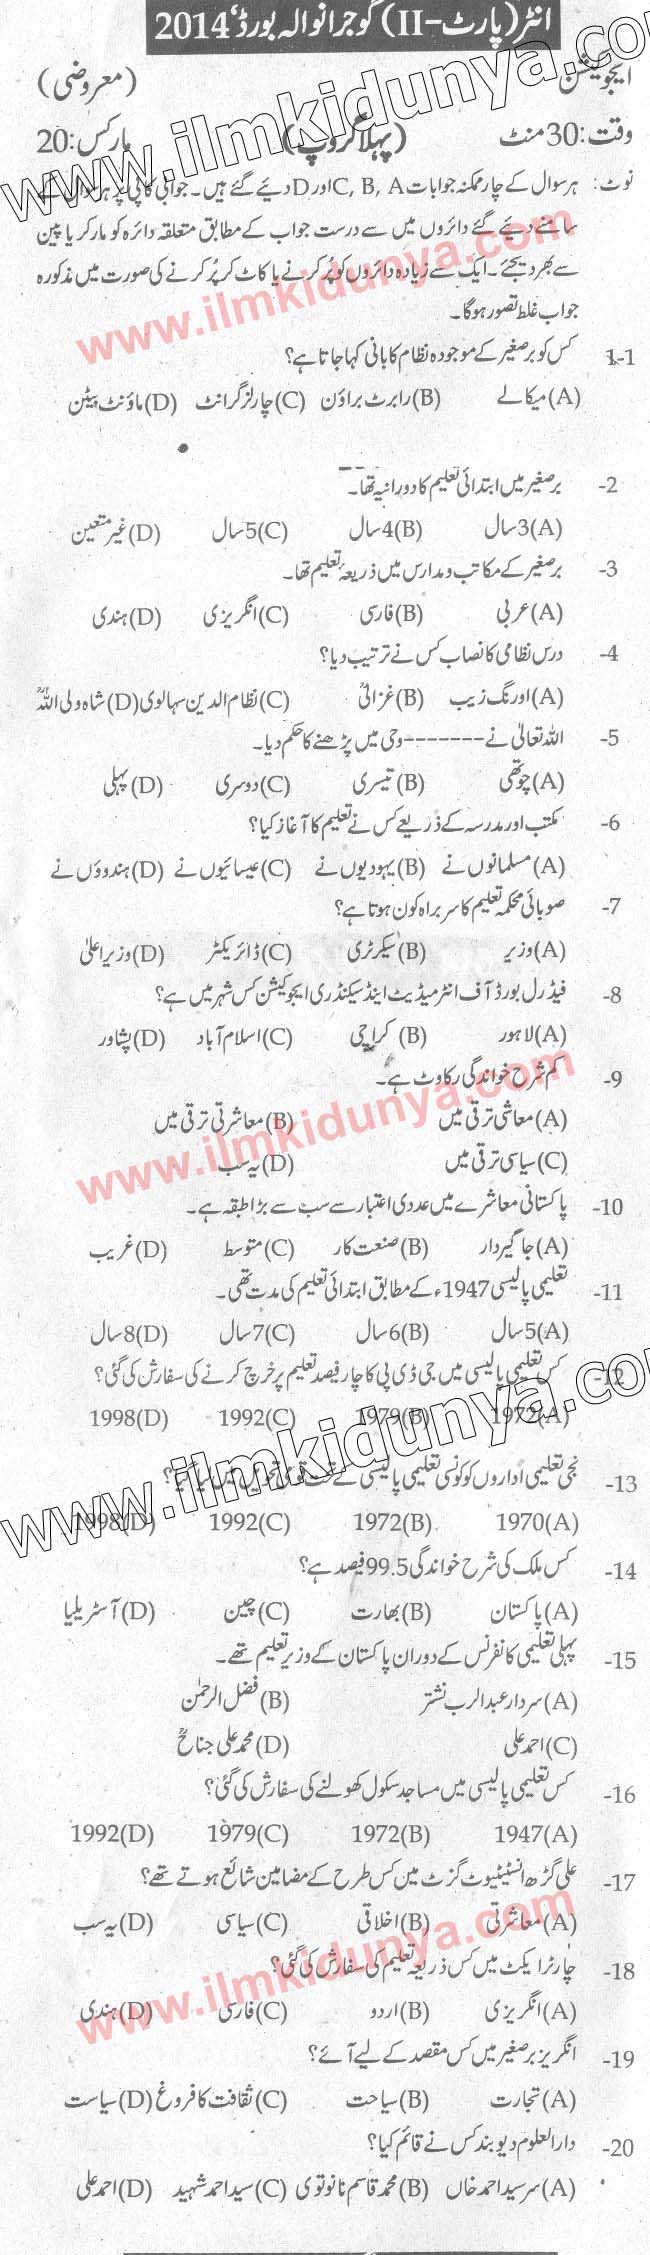 انٹر (پارٹ-II) گوجرانوالہ بورڈ، 2014
ایجوکیشن (معروضی)
وقت: 30 منٹ (پہلا گروپ) مارکس: 20
نوٹ: ہر سوال کے چار ممکنہ جوابات A ,B ,C اور D دیئے گئے ہیں۔ جوابی کاپی پر ہر سوال کے
سامنے دیئے گئے دائروں میں سے درست جواب کے مطابق متعلقہ دائرہ کو مارکر یا پین
سے بھر دیجئے۔ ایک سے زیادہ دائروں کو پُر کرنے یا کاٹ کر پُر کرنے کی صورت میں مذکورہ
جواب غلط تصور ہوگا۔
1-1 کس کو برصغیر کے موجودہ نظام کا بانی کہا جاتا ہے؟
(A) میکالے (B) رابرٹ براؤن (C) چارلز گرانٹ (D) ماؤنٹ بیٹن
2- برصغیر میں ابتدائی تعلیم کا دورانیہ تھا۔
(A) 3 سال (B) 4 سال (C) 5 سال (D) غیر متعین
3- برصغیر کے مکاتب و مدارس میں ذریعۂ تعلیم تھا۔
(A) عربی (B) فارسی (C) انگریزی (D) ہندی
4- درس نظامی کا نصاب کس نے ترتیب دیا؟
(A) اورنگ زیب (B) غزالیؒ (C) نظام الدین سہالوی (D) شاہ ولی اللہؒ
5- اللہ تعالیٰ نے ------- وحی میں پڑھنے کا حکم دیا۔
(A) چوتھی (B) تیسری (C) دوسری (D) پہلی
6- مکتب اور مدرسہ کے ذریعے کس نے تعلیم کا آغاز کیا؟
(A) مسلمانوں نے (B) یہودیوں نے (C) عیسائیوں نے (D) ہندوؤں نے
7- صوبائی محکمہ تعلیم کا سربراہ کون ہوتا ہے؟
(A) وزیر (B) سیکرٹری (C) ڈائریکٹر (D) وزیراعلیٰ
8- فیڈرل بورڈ آف انٹرمیڈیٹ اینڈ سیکنڈری ایجوکیشن کس شہر میں ہے؟
(A) لاہور (B) کراچی (C) اسلام آباد (D) پشاور
9- کم شرح خواندگی رکاوٹ ہے۔
(A) معاشی ترقی میں (B) معاشرتی ترقی میں
(C) سیاسی ترقی میں (D) یہ سب
10- پاکستانی معاشرے میں عددی اعتبار سے سب سے بڑا طبقہ ہے۔
(A) جاگیردار (B) صنعت کار (C) متوسط (D) غریب
11- تعلیمی پالیسی 1947ء کے مطابق ابتدائی تعلیم کی مدت تھی۔
(A) 5 سال (B) 6 سال (C) 7 سال (D) 8 سال
12- کس تعلیمی پالیسی میں جی ڈی پی کا چار فیصد تعلیم پر خرچ کرنے کی سفارش کی گئی؟
(A) 1972 (B) 1979 (C) 1992 (D) 1998
13- نجی تعلیمی اداروں کو کونسی تعلیمی پالیسی کے تحت قومی تحویل میں لیا گیا؟
(A) 1970 (B) 1972 (C) 1992 (D) 1998
14- کس ملک کی شرح خواندگی 99.5 فیصد ہے؟
(A) پاکستان (B) بھارت (C) چین (D) آسٹریلیا
15- پہلی تعلیمی کانفرنس کے دوران پاکستان کے وزیر تعلیم تھے۔
(A) سردار عبدالرب نشتر (B) فضل الرحمٰن
(C) احمد علی (D) محمد علی جناحؒ
16- کس تعلیمی پالیسی میں مساجد سکول کھولنے کی سفارش کی گئی؟
(A) 1947 (B) 1972 (C) 1979 (D) 1992
17- علی گڑھ انسٹیٹیوٹ گزٹ میں کس طرح کے مضامین شائع ہوتے تھے؟
(A) معاشرتی (B) اخلاقی (C) سیاسی (D) یہ سب
18- چارٹر ایکٹ میں کس ذریعہ تعلیم کی سفارش کی گئی؟
(A) انگریزی (B) اردو (C) فارسی (D) ہندی
19- انگریز برصغیر میں کس مقصد کے لیے آئے؟
(A) تجارت (B) سیاحت (C) ثقافت کا فروغ (D) سیاست
20- دارالعلوم دیوبند کس نے قائم کیا؟
(A) سرسید احمد خاں (B) محمد قاسم نانوتوی (C) سید احمد شہید (D) احمد علی
www.ilmkidunya.com
www.ilmkidunya.com
www.ilmkidunya.com
www.ilmkidunya.com
www.ilmkidunya.com